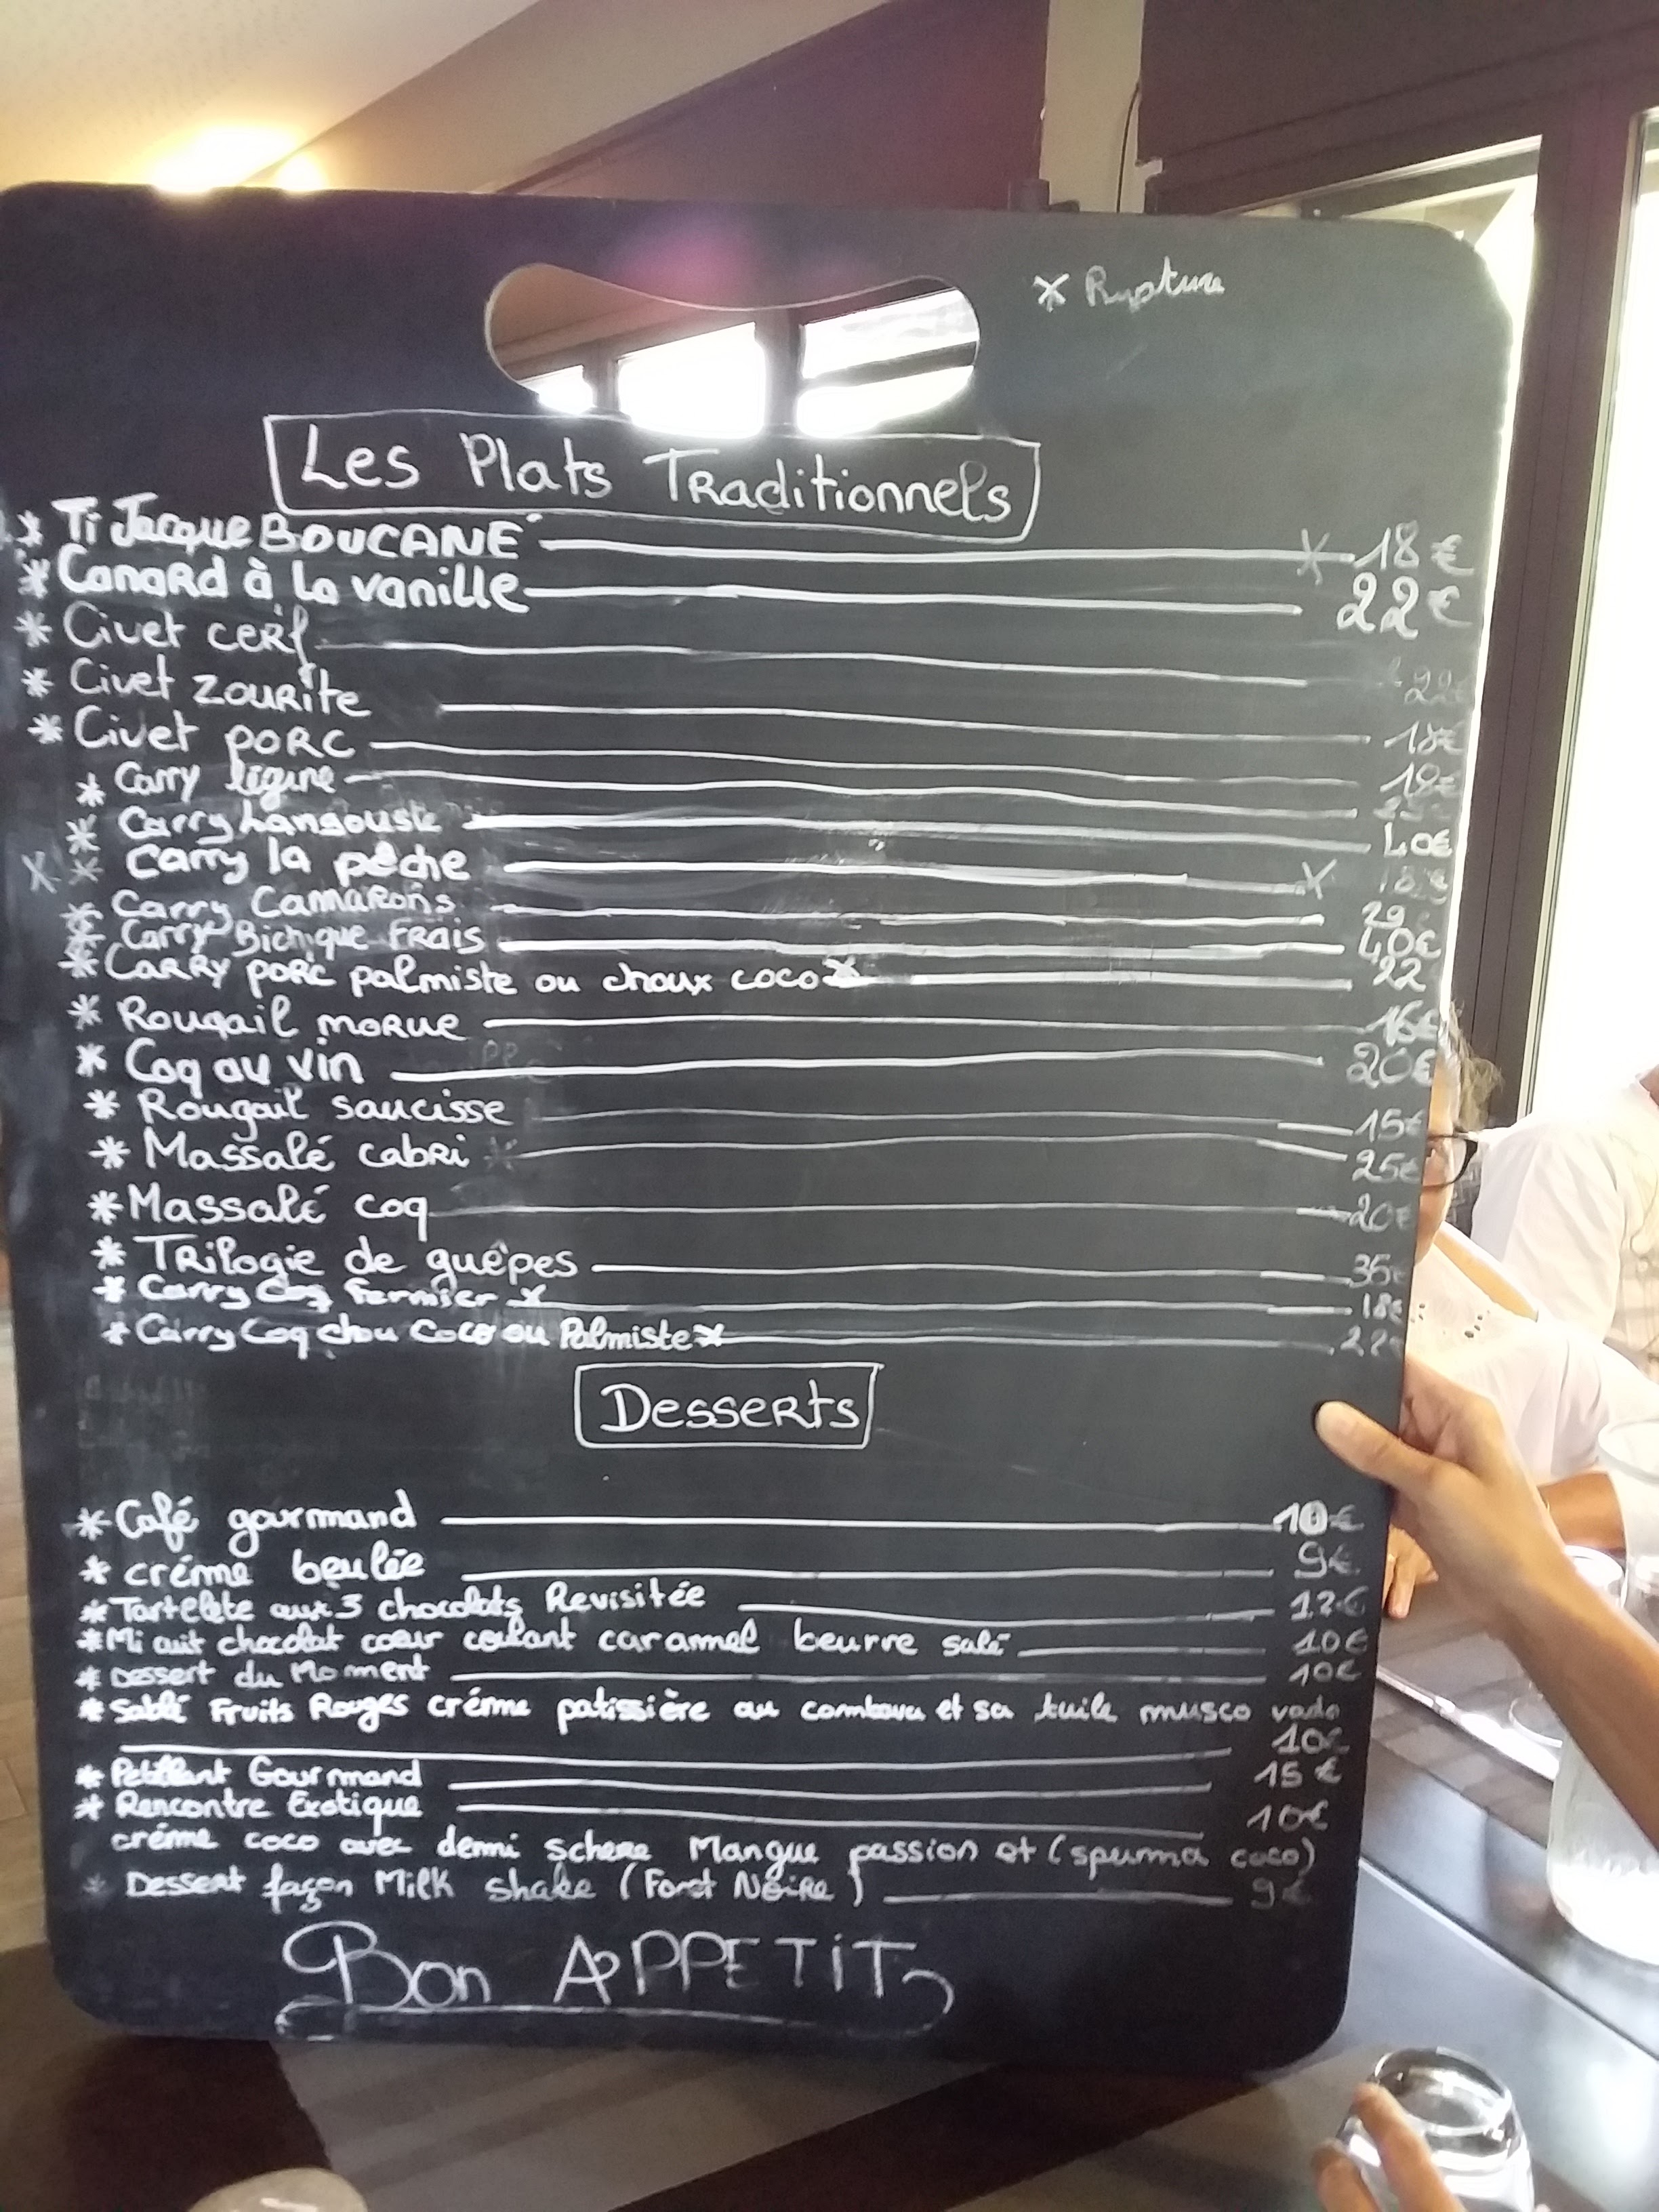 x Rupture
Les Plats TRaditionnels
* Ti Jacque BOUCANÉ x 18€
* CanaRd à la vanille 22€
* Civet ceRf 22€
* Civet zouRite 18€
* Civet poRc 18€
* Carry légine
* Carry Langouste 40€
x * Carry la pêche x 18€
* Carry CamaRons 29
* Carry Bichique FRais 40€
* CaRRy porc palmiste ou choux coco x 22
* Rougail moRue 16€
* Coq au vin 20€
* Rougail saucisse 15€
* Massalé cabRi 25€
* Massalé coq 20€
* TRilogie de guêpes 35€
* Carry Coq fermier x 18€
* Carry Coq chou Coco ou Palmiste x 22€
DesseRts
* Café gourmand 10€
* créme brulée 9€
* Tartelete aux 3 chocolats Revisitée 12€
* Mi cuit chocolat cœur coulant caramel beurre salé 10€
* Dessert du Moment 10€
* Sablé Fruits Rouges créme patissière au combava et sa tuile musco vado
10€
* Petillant Gourmand 15€
* Rencontre Exotique 10€
créme coco avec demi Mangue passion et (spuma coco)
* Dessert façon Milk shake (Foret NoiRe) 9€
Bon APPETIT